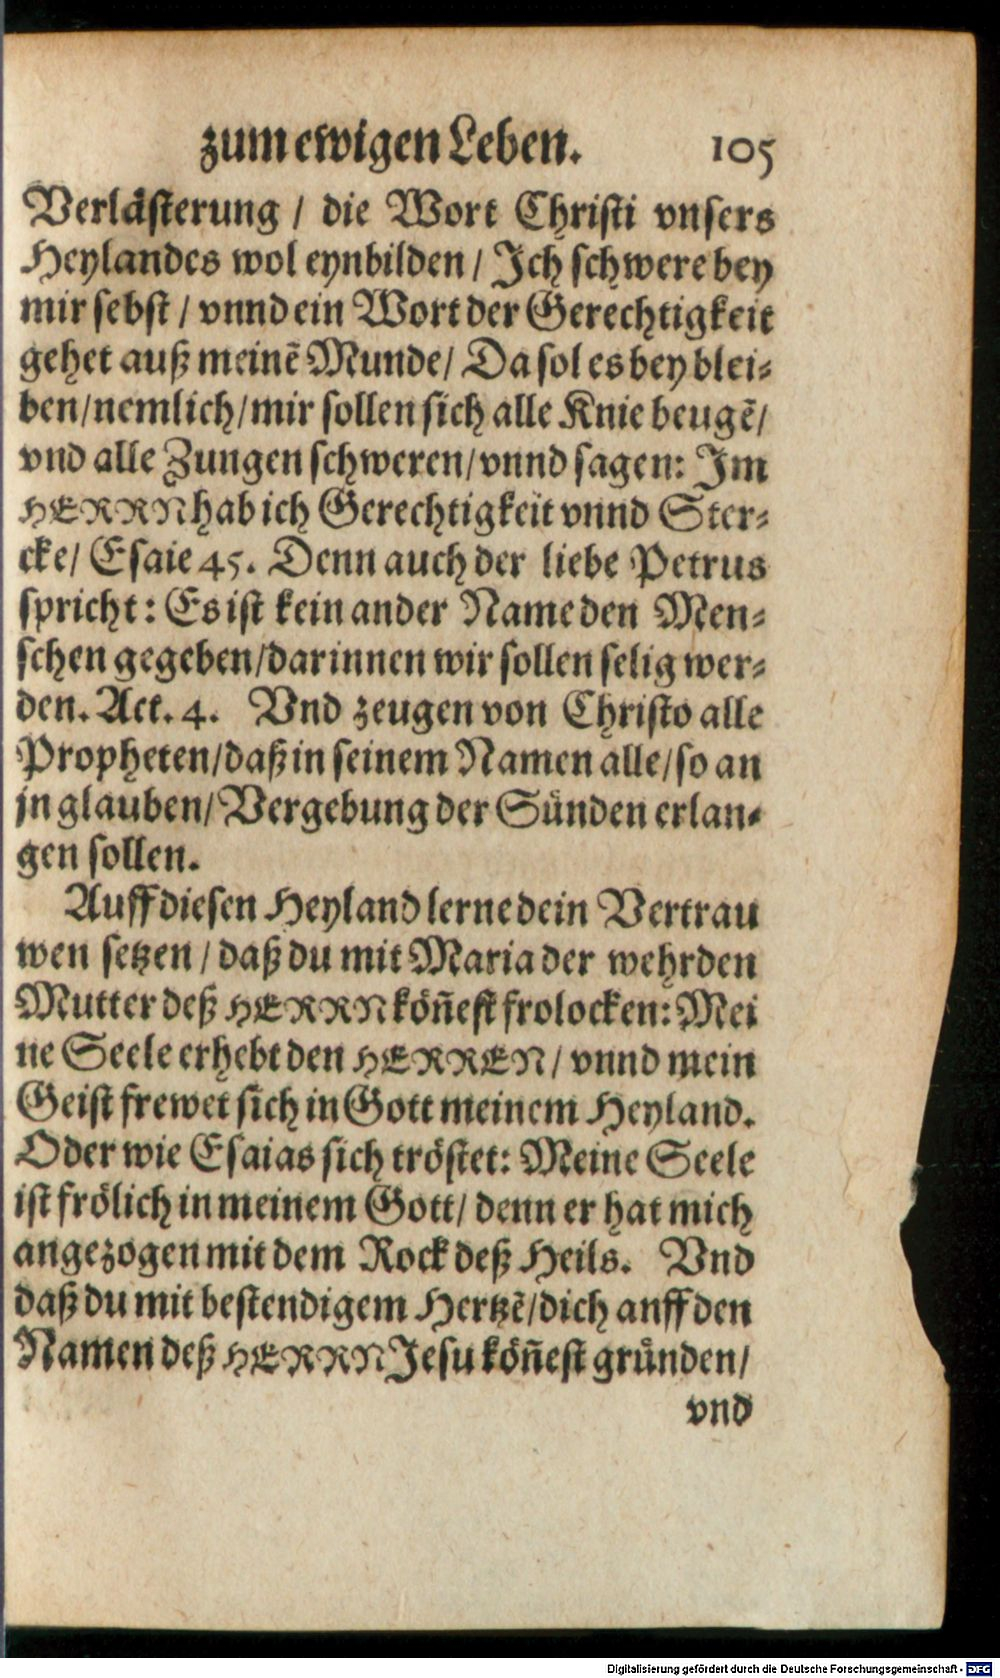 zum ewigen Leben. 105
Verlästerung / die Wort Christi vnsers
Heylandes wol eynbilden / Ich schwere bey
mir sebst / vnnd ein Wort der Gerechtigkeit
gehet auß meinẽ Munde / Da sol es bey blei-
ben / nemlich / mir sollen sich alle Knie beugẽ /
vnd alle Zungen schweren / vnnd sagen: Im
HERRN hab ich Gerechtigkeit vnnd Ster-
cke / Esaie 45. Denn auch der liebe Petrus
spricht: Es ist kein ander Name den Men-
schen gegeben / darinnen wir sollen selig wer-
den. Act. 4. Vnd zeugen von Christo alle
Propheten / daß in seinem Namen alle / so an
jn glauben / Vergebung der Sünden erlan-
gen sollen.
Auff diesen Heyland lerne dein Vertrau
wen setzen / daß du mit Maria der wehrden
Mutter deß HERRN köñest frolocken: Mei
ne Seele erhebt den HERREN / vnnd mein
Geist frewet sich in Gott meinem Heyland.
Oder wie Esaias sich tröstet: Meine Seele
ist frölich in meinem Gott / denn er hat mich
angezogen mit dem Rock deß Heils. Vnd
daß du mit bestendigem Hertzẽ / dich anff den
Namen deß HERRN Jesu köñest gründen /
vnd
Digitalisierung gefördert durch die Deutsche Forschungsgemeinschaft - DFG